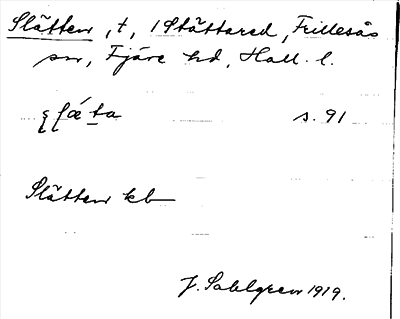 Slätten, t, 1 Stättared, Frillesås
sn, Fjäre hd, Hall. l.
s. 91
Slätten kb
J. Sahlgren 1919.